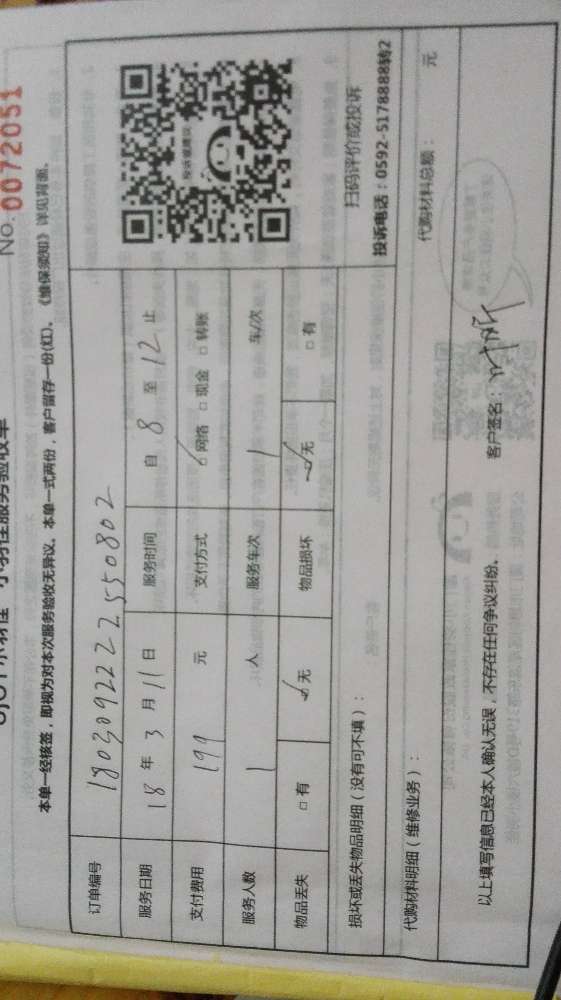 小羽佳服务验收单
No. 0072051
本单一经核签，即视为对本次服务验收无异议。本单一式两份，客户留存一份(红)。《维保须知》详见背面。
订单编号 1803092222550802
服务日期 18 年 3 月 11 日 服务时间 自 8 至 12 止
支付费用 199 元 支付方式 ☑网络 □现金 □转账
服务人数 1 人 服务车次 1 车/次
物品丢失 □有 ☑无 物品损坏 ☑无 □有
投诉或建议
扫码评价或投诉
投诉电话：0592-5178888转2
损坏或丢失物品明细（没有可不填）：
代购材料明细（维修业务）： 代购材料总额： 元
以上填写信息已经本人确认无误，不存在任何争议纠纷。 客户签名：